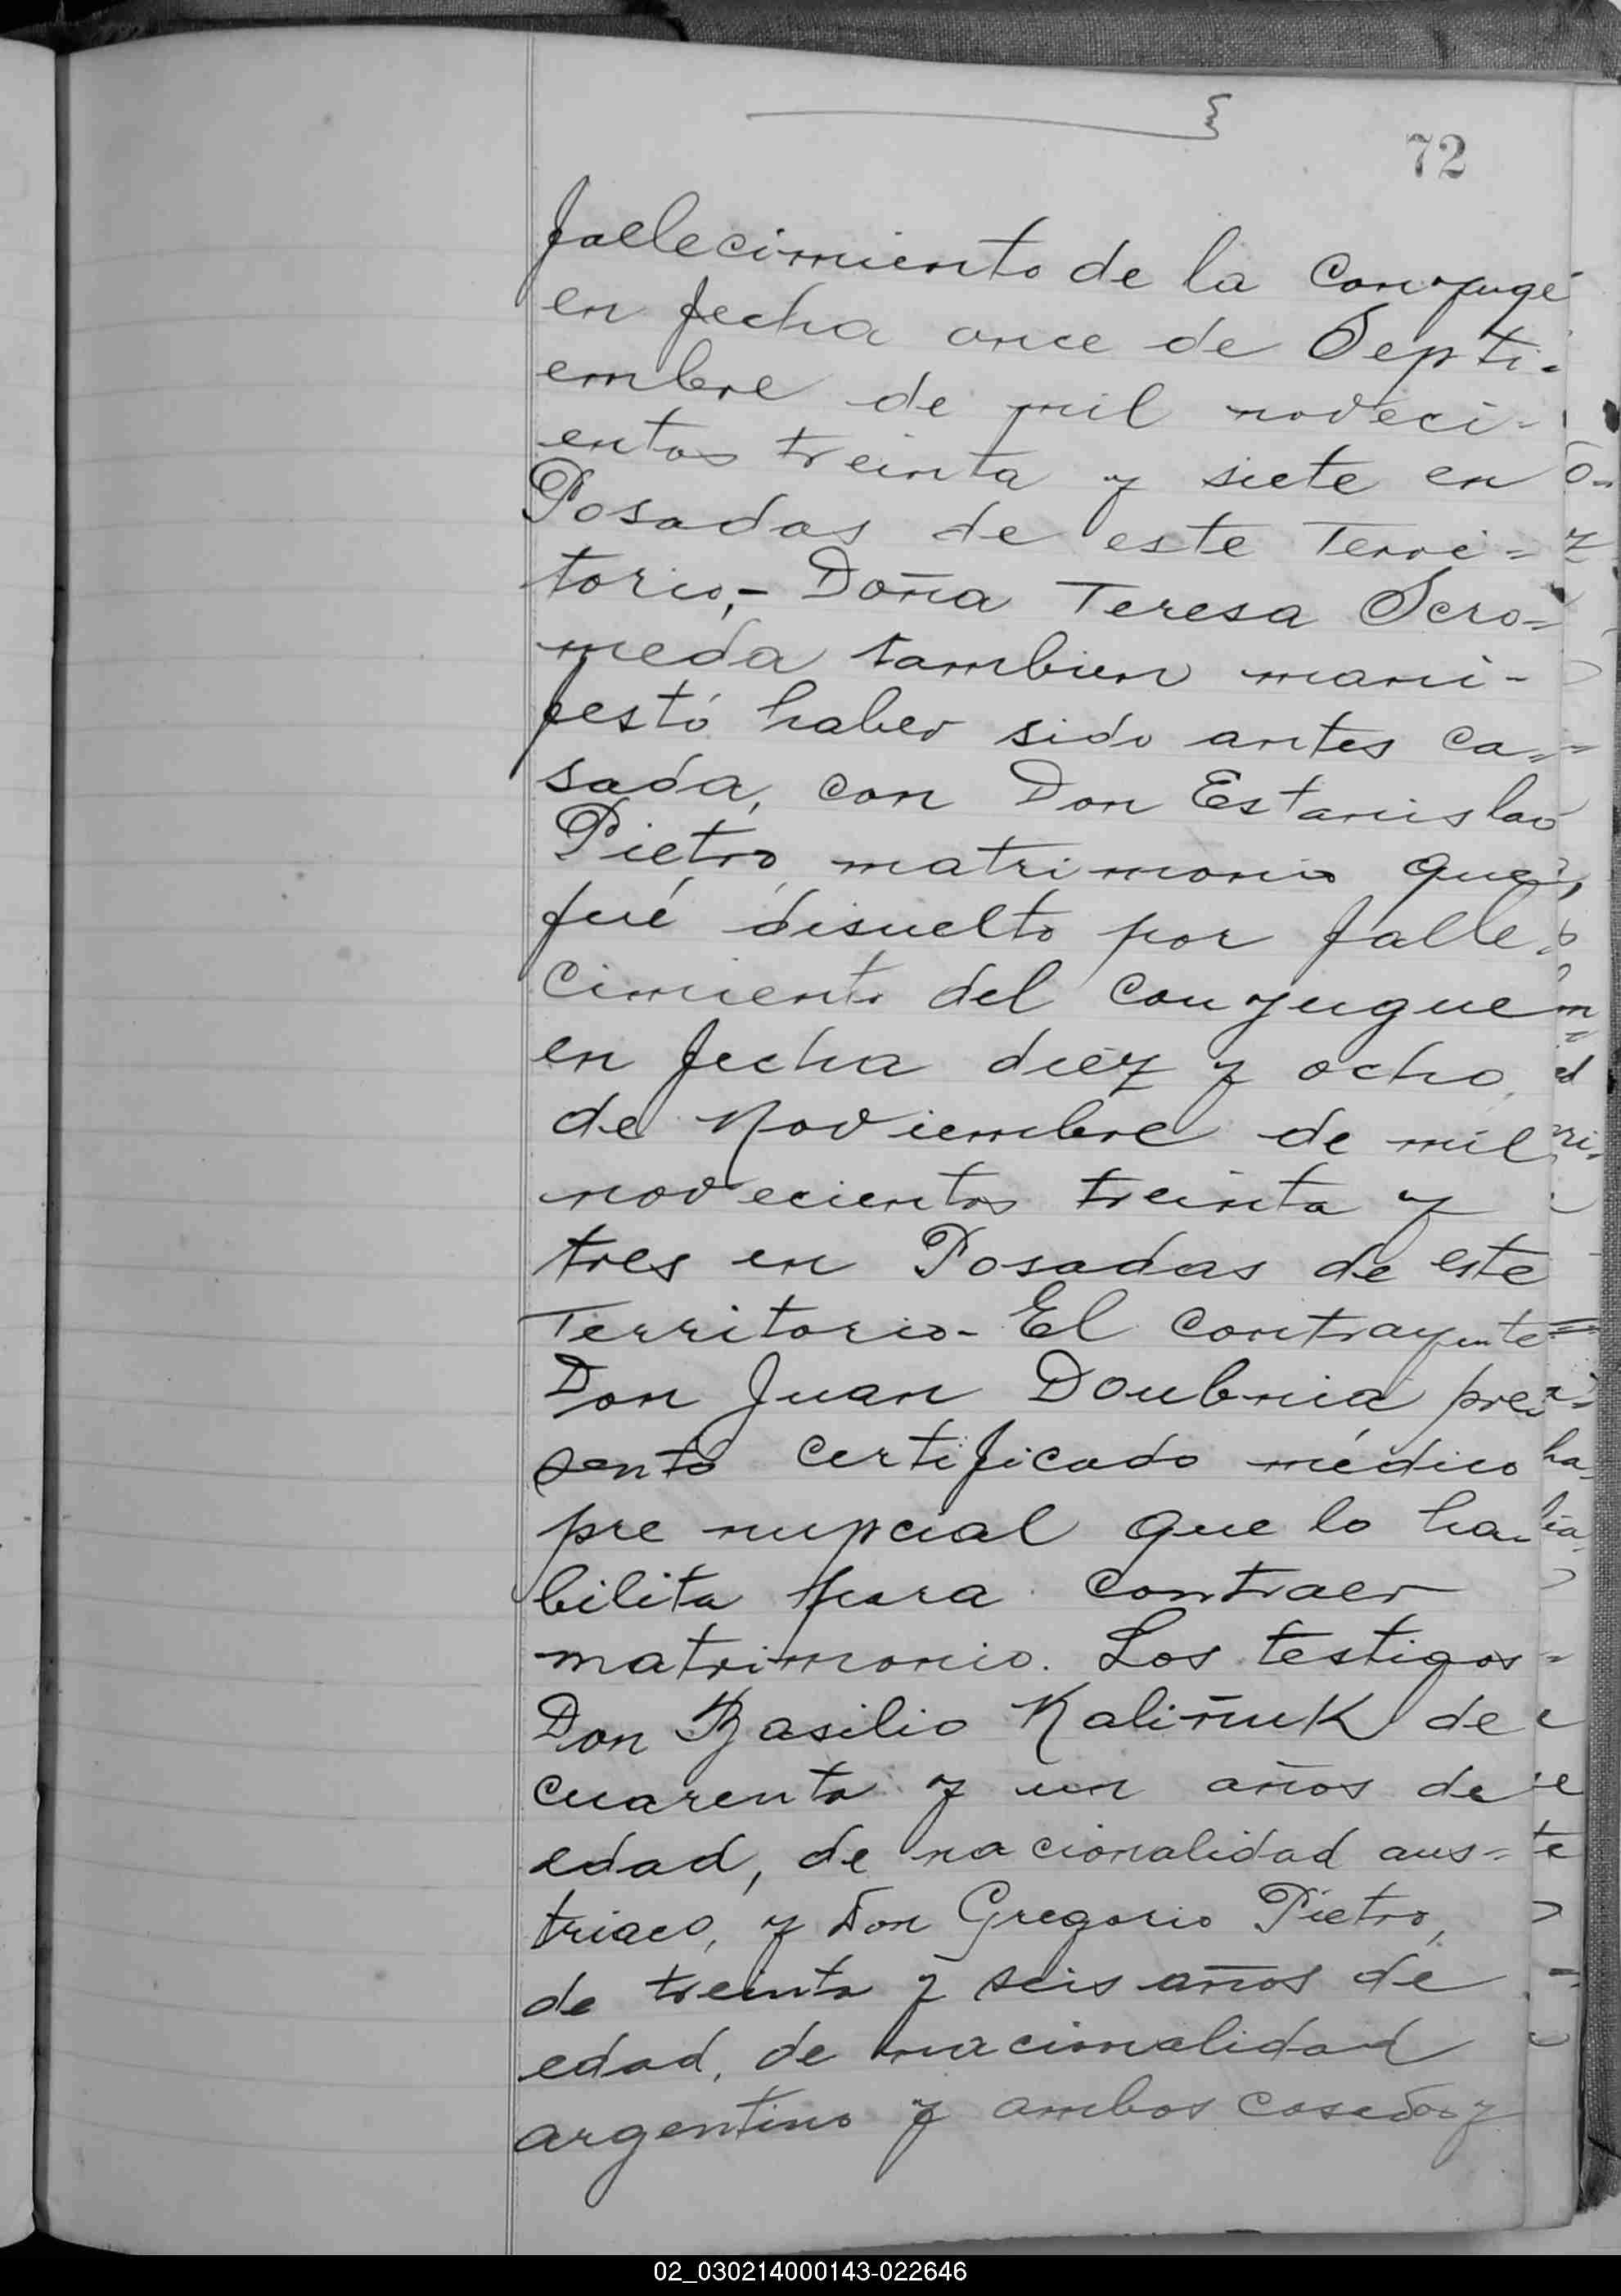 72
fallecimiento de la conyuge
en fecha once de Septi-
embre de mil noveci-
entos treinta y siete en
Posadas de este Terri=
torio,- Doña Teresa Scro=
meda tambien mani-
festó haber sido antes ca=
sada, con Don Estanislao
Pietro, matrimonio que,
fué disuelto por falle-
cimiento del conyugue
en fecha diéz y ocho
de Noviembre de mil
novecientos treinta y
tres en Posadas de este
Territorio- El contrayente
Don Juan Doubnia pre-
sentó certificado médico
pre nupcial que lo ha-
bilita para contraer
matrimonio. Los testigos
Don Basilio Kaliñuk de
cuarenta y un años de
edad, de nacionalidad aus=
triaco, y Don Gregorio Pietro,
de treinta y seis años de
edad, de nacionalidad
argentino y ambos casados y
02_030214000143-022646